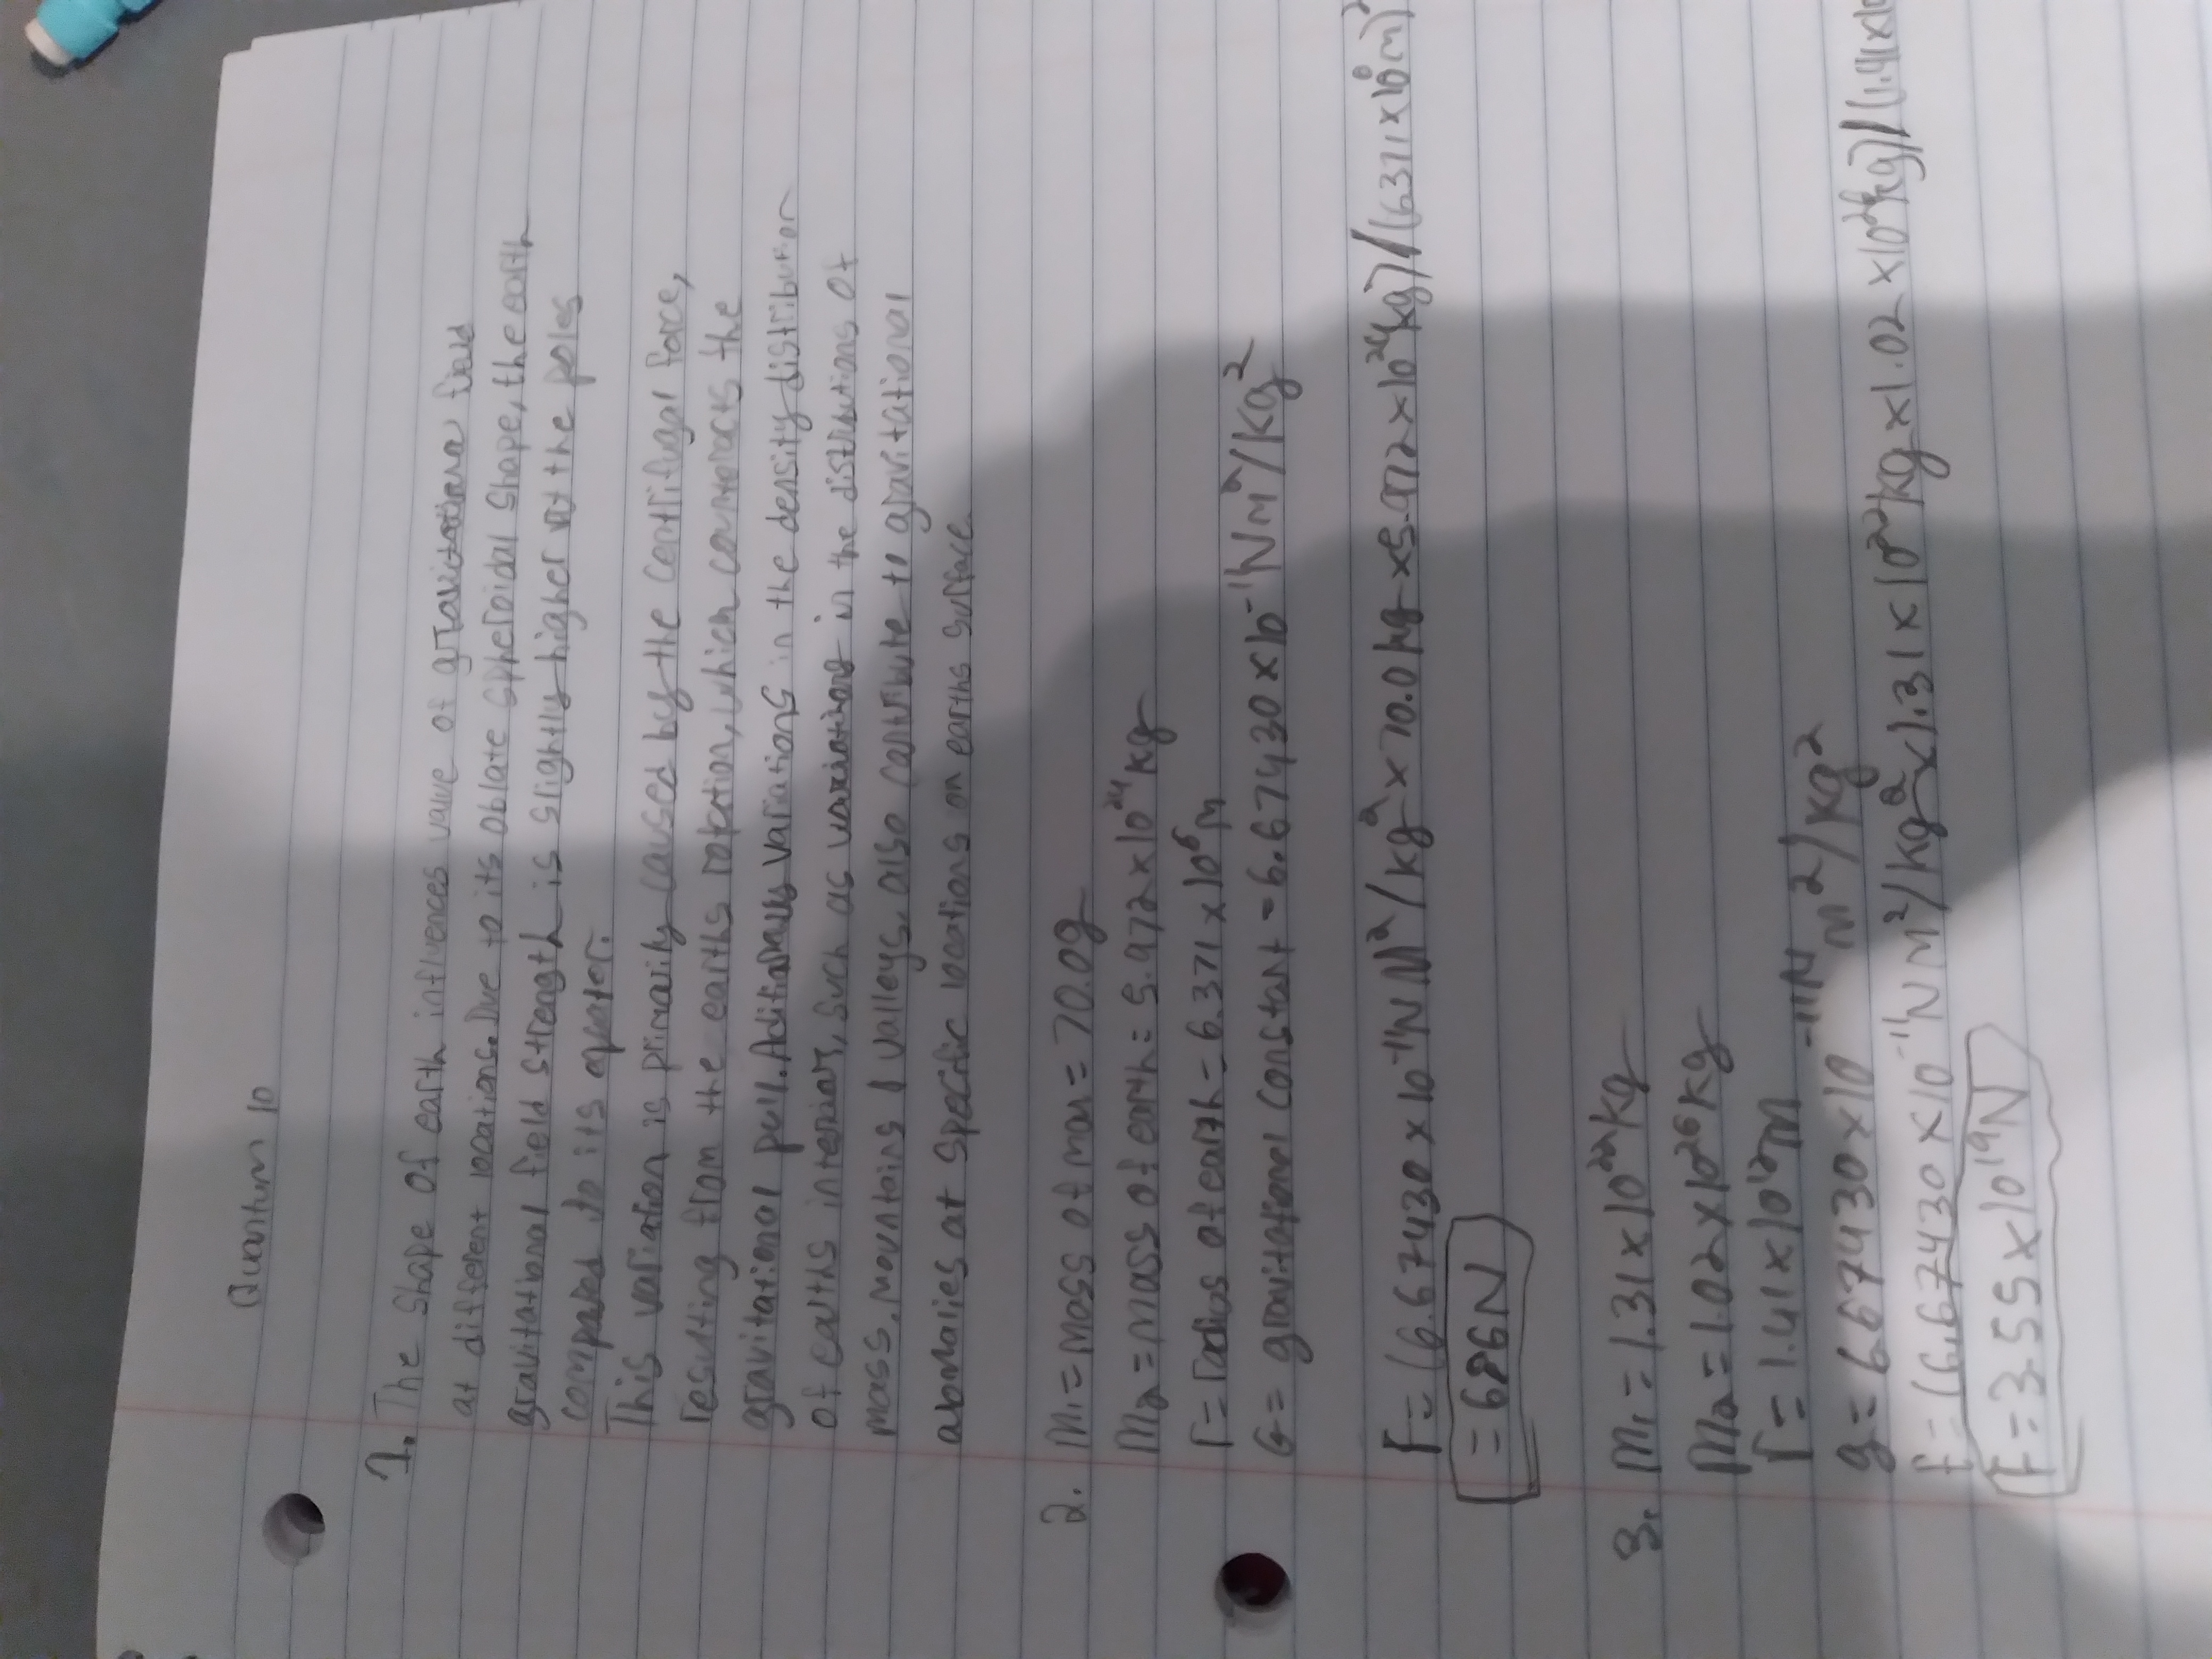 Quantum 10
1. The shape of earth influences value of gravitational field
at different locations. Due to its oblate spheroidal shape, the earth
gravitational field strength is slightly higher at the poles
compared to its equator.
This variation is primarily caused by the centrifugal force,
resulting from the earths rotation, which counteracts the
gravitational pull. Additionally variations in the density distribution
of earths interior, such as variations in the distributions of
mass, mountains & valleys, also contribute to gravitational
abmalies at specific locations on earths surface.
2. M₁ = mass of man = 70.0g
M₂ = mass of earth = 5.972 x 10²⁴ kg
r = radius of earth = 6.371 x 10⁶ m
G = gravitational constant = 6.67430 x 10⁻¹¹ Nm²/kg²
F = (6.67430 x 10⁻¹¹ N M²/kg² x 70.0 kg x 5.972 x 10²⁴ kg) / (6.371 x 10⁶ m)²
= 686N
3. M₁ = 1.31 x 10²² kg
M₂ = 1.02 x 10²⁶ kg
r = 1.41 x 10¹² m
g = 6.67430 x 10⁻¹¹ N m²/kg²
F = (6.67430 x 10⁻¹¹ N m²/kg² x 1.31 x 10²² kg x 1.02 x 10²⁶ kg) / (1.41 x 10
F = 3.55 x 10¹⁹ N